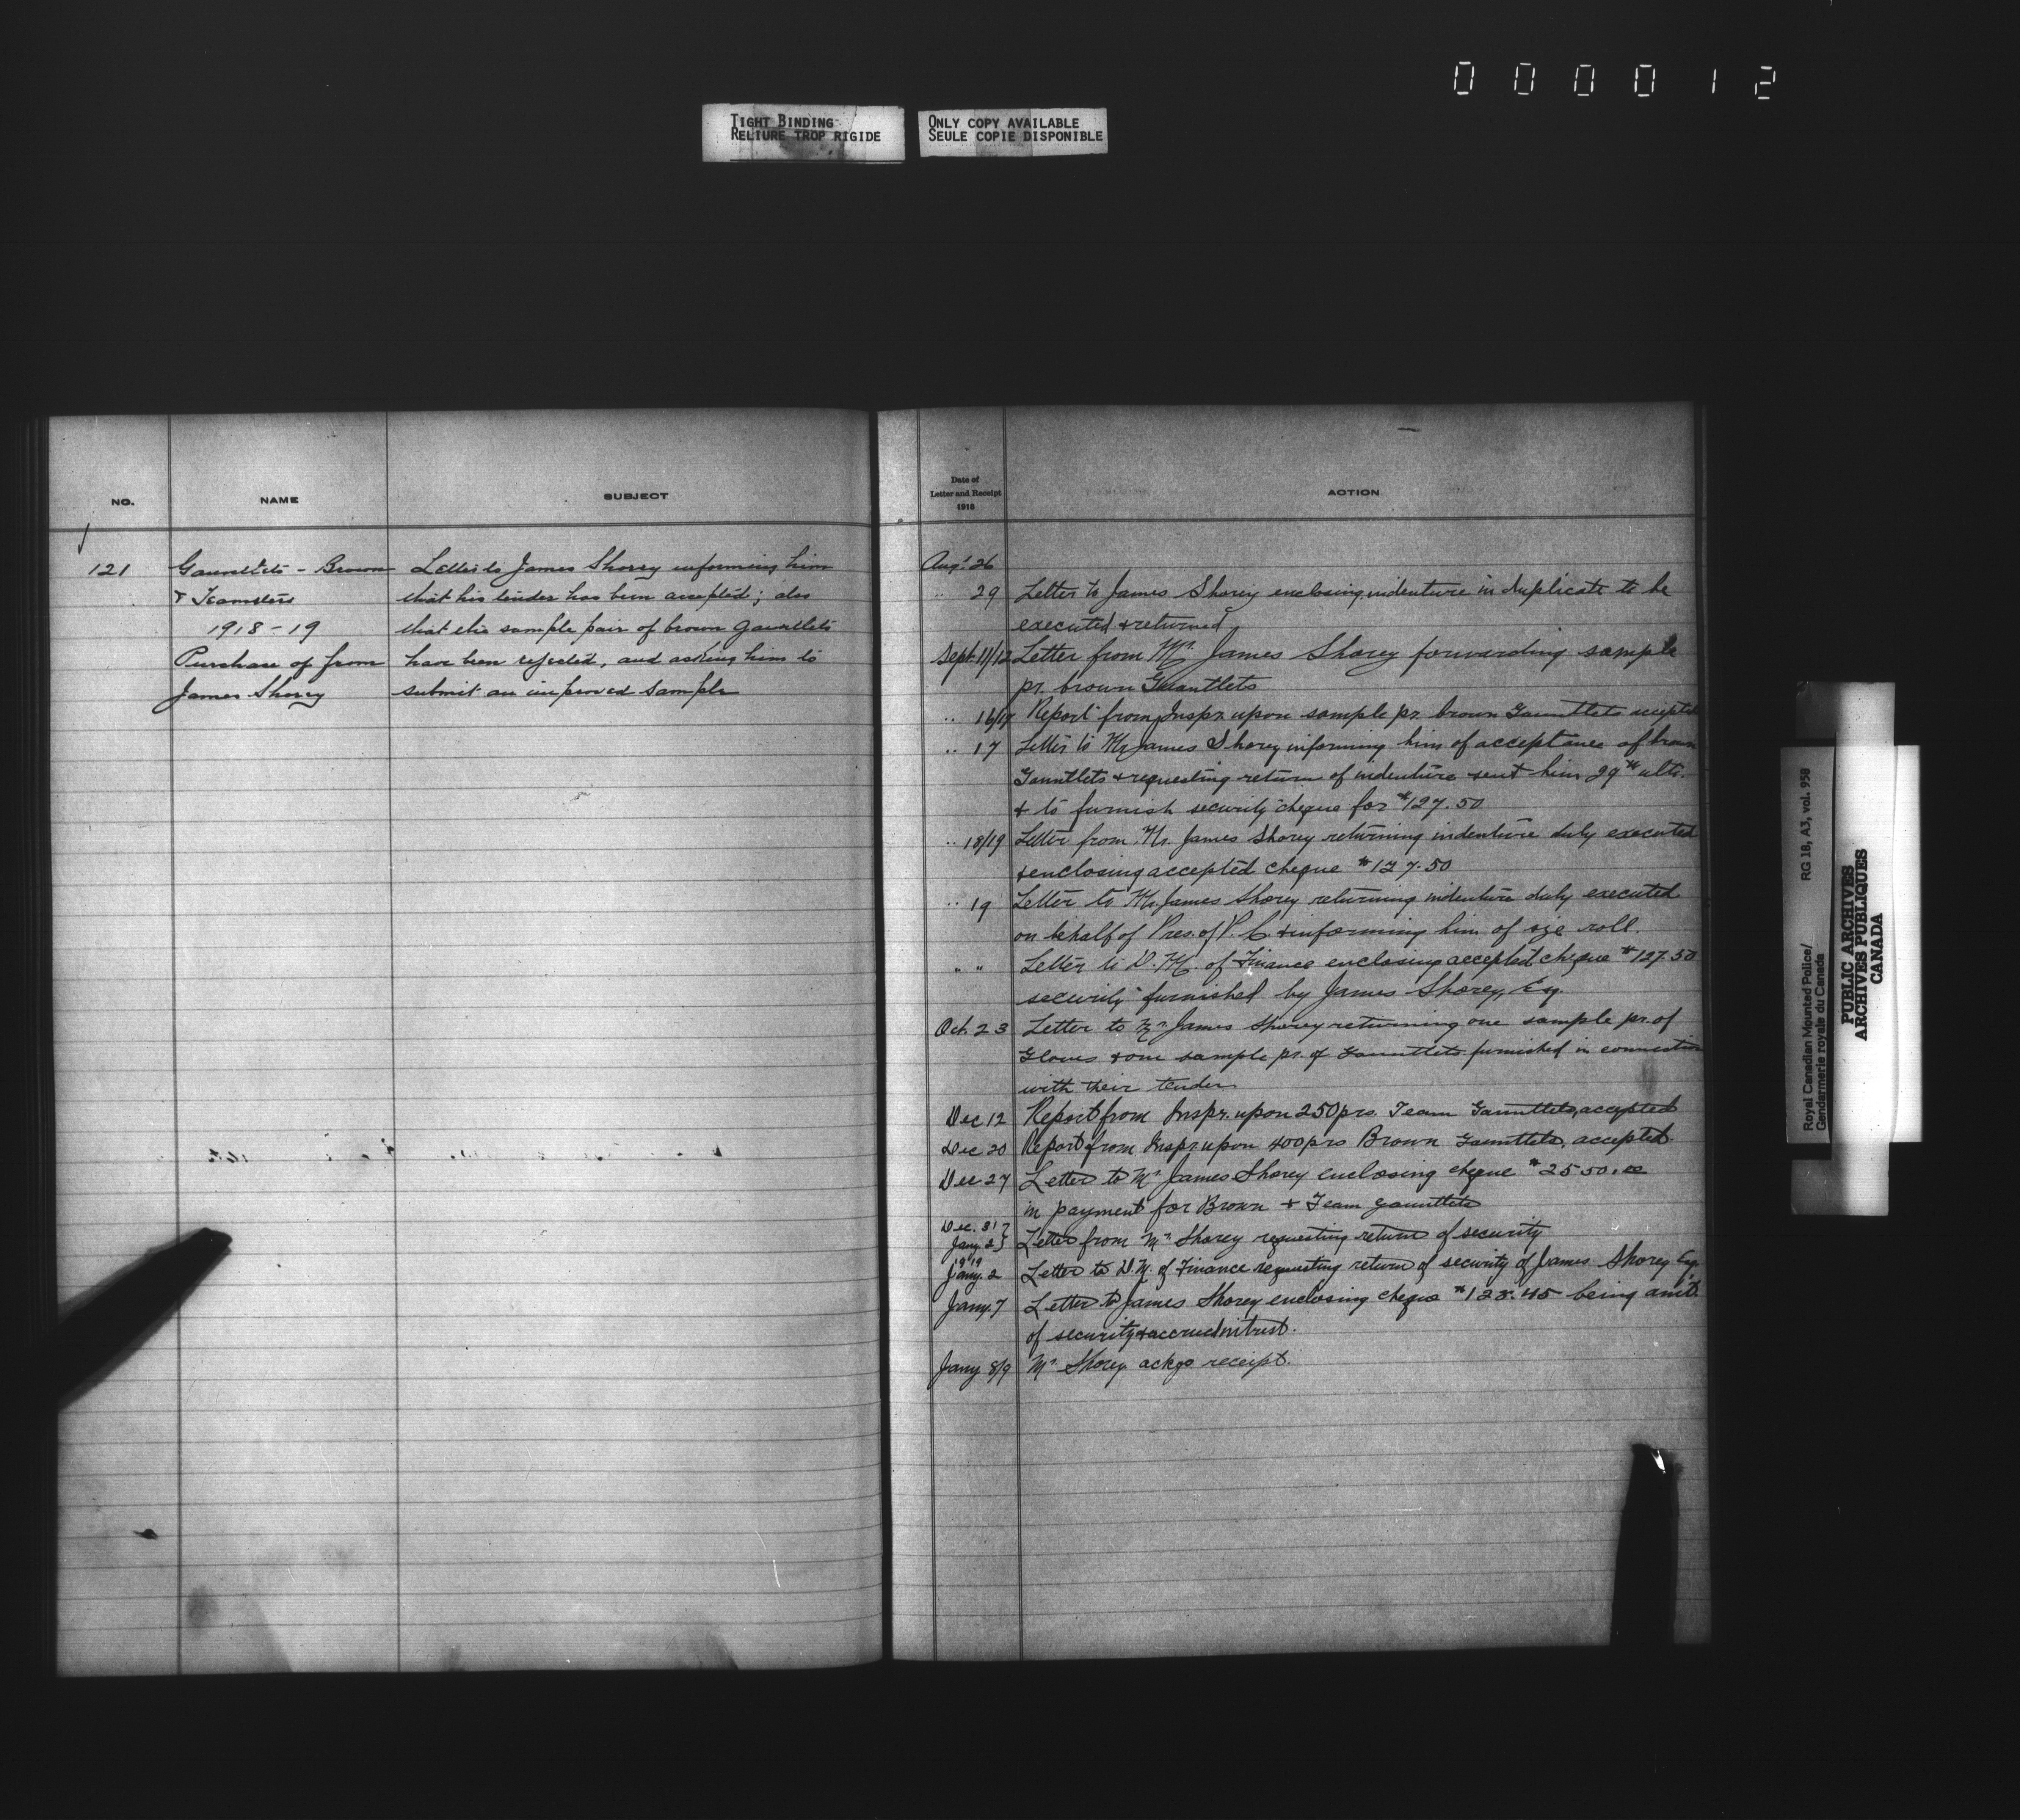 000012
TIGHT BINDING
RELIURE TROP RIGIDE
ONLY COPY AVAILABLE
SEULE COPIE DISPONIBLE
NO.
NAME
SUBJECT
121
Gauntlets - Brown
& Teamsters
1918-19
Purchase of from
James Shorey
Letter to James Shorey informing him
that his tender has been accepted; also
that the sample pair of brown gauntlets
have been rejected, and asking him to
submit an improved sample
Date of
Letter and Receipt
1918
ACTION
Aug. 26
.. 29 Letter to James Shorey enclosing indenture in duplicate to be
executed & returned
Sept. 11/12 Letter from Mr. James Shorey forwarding sample
pr. brown Gauntlets
.. 16/17 Report from Inspr. upon sample pr. brown Gauntlets
.. 17 Letter to Mr James Shorey informing him of acceptance of brown
Gauntlets & requesting return of indenture sent him 29th ulto.
& to furnish security cheque for $127.50
.. 18/19 Letter from Mr. James Shorey returning indenture duly executed
& enclosing accepted cheque $127.50
.. 19 Letter to Mr. James Shorey returning indenture duly executed
on behalf of Pres. of P. C. & informing him of size roll.
" " Letter to D. M. of Finance enclosing accepted cheque $127.50
security furnished by James Shorey, Esq.
Oct. 23 Letter to Mr. James Shorey returning one sample pr. of
Gloves & one sample pr. of Gauntlets furnished in connection
with their tender
Dec 12 Report from Inspr. upon 250 prs. Team Gauntlets, accepted
Dec 20 Report from Inspr upon 400 prs Brown Gauntlets, accepted.
Dec 27 Letter to Mr. James Shorey enclosing cheque $2550.00
in payment for Brown & Team gauntlets
Dec. 31 }
Jany. 2 } Letter from Mr. Shorey requesting return of security
1919
Jany. 2 Letter to D. M. of Finance requesting return of security of James Shorey Esq.
Jany. 7 Letter to James Shorey enclosing cheque $128.45 being amt.
of security & accrued intrest.
Jany 8/9 Mr. Shorey ackgs receipt.
Royal Canadian Mounted Police/
Gendarmerie royale du Canada
RG 18, A3, vol. 958
PUBLIC ARCHIVES
ARCHIVES PUBLIQUES
CANADA